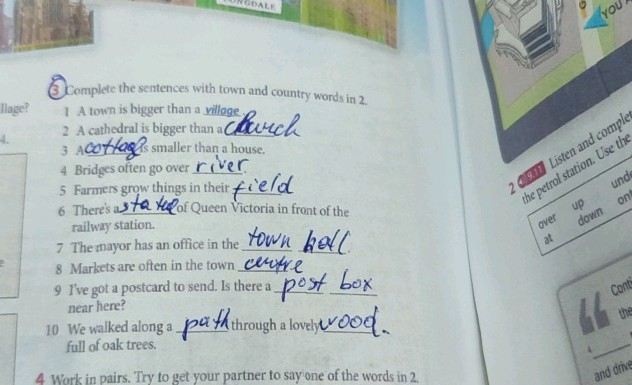 NGDALE
3 Complete the sentences with town and country words in 2.
1 A town is bigger than a village.
2 A cathedral is bigger than a church
3 A cottage is smaller than a house.
4 Bridges often go over river.
5 Farmers grow things in their field
6 There's a statue of Queen Victoria in front of the
railway station.
7 The mayor has an office in the town hall.
8 Markets are often in the town centre
9 I've got a postcard to send. Is there a post box
near here?
10 We walked along a path through a lovely wood.
full of oak trees.
4 Work in pairs. Try to get your partner to say one of the words in 2.
llage?
4.
YOU
2 9.11 Listen and complet
the petrol station. Use the
over up unde
at down on
Conti
the
and drive